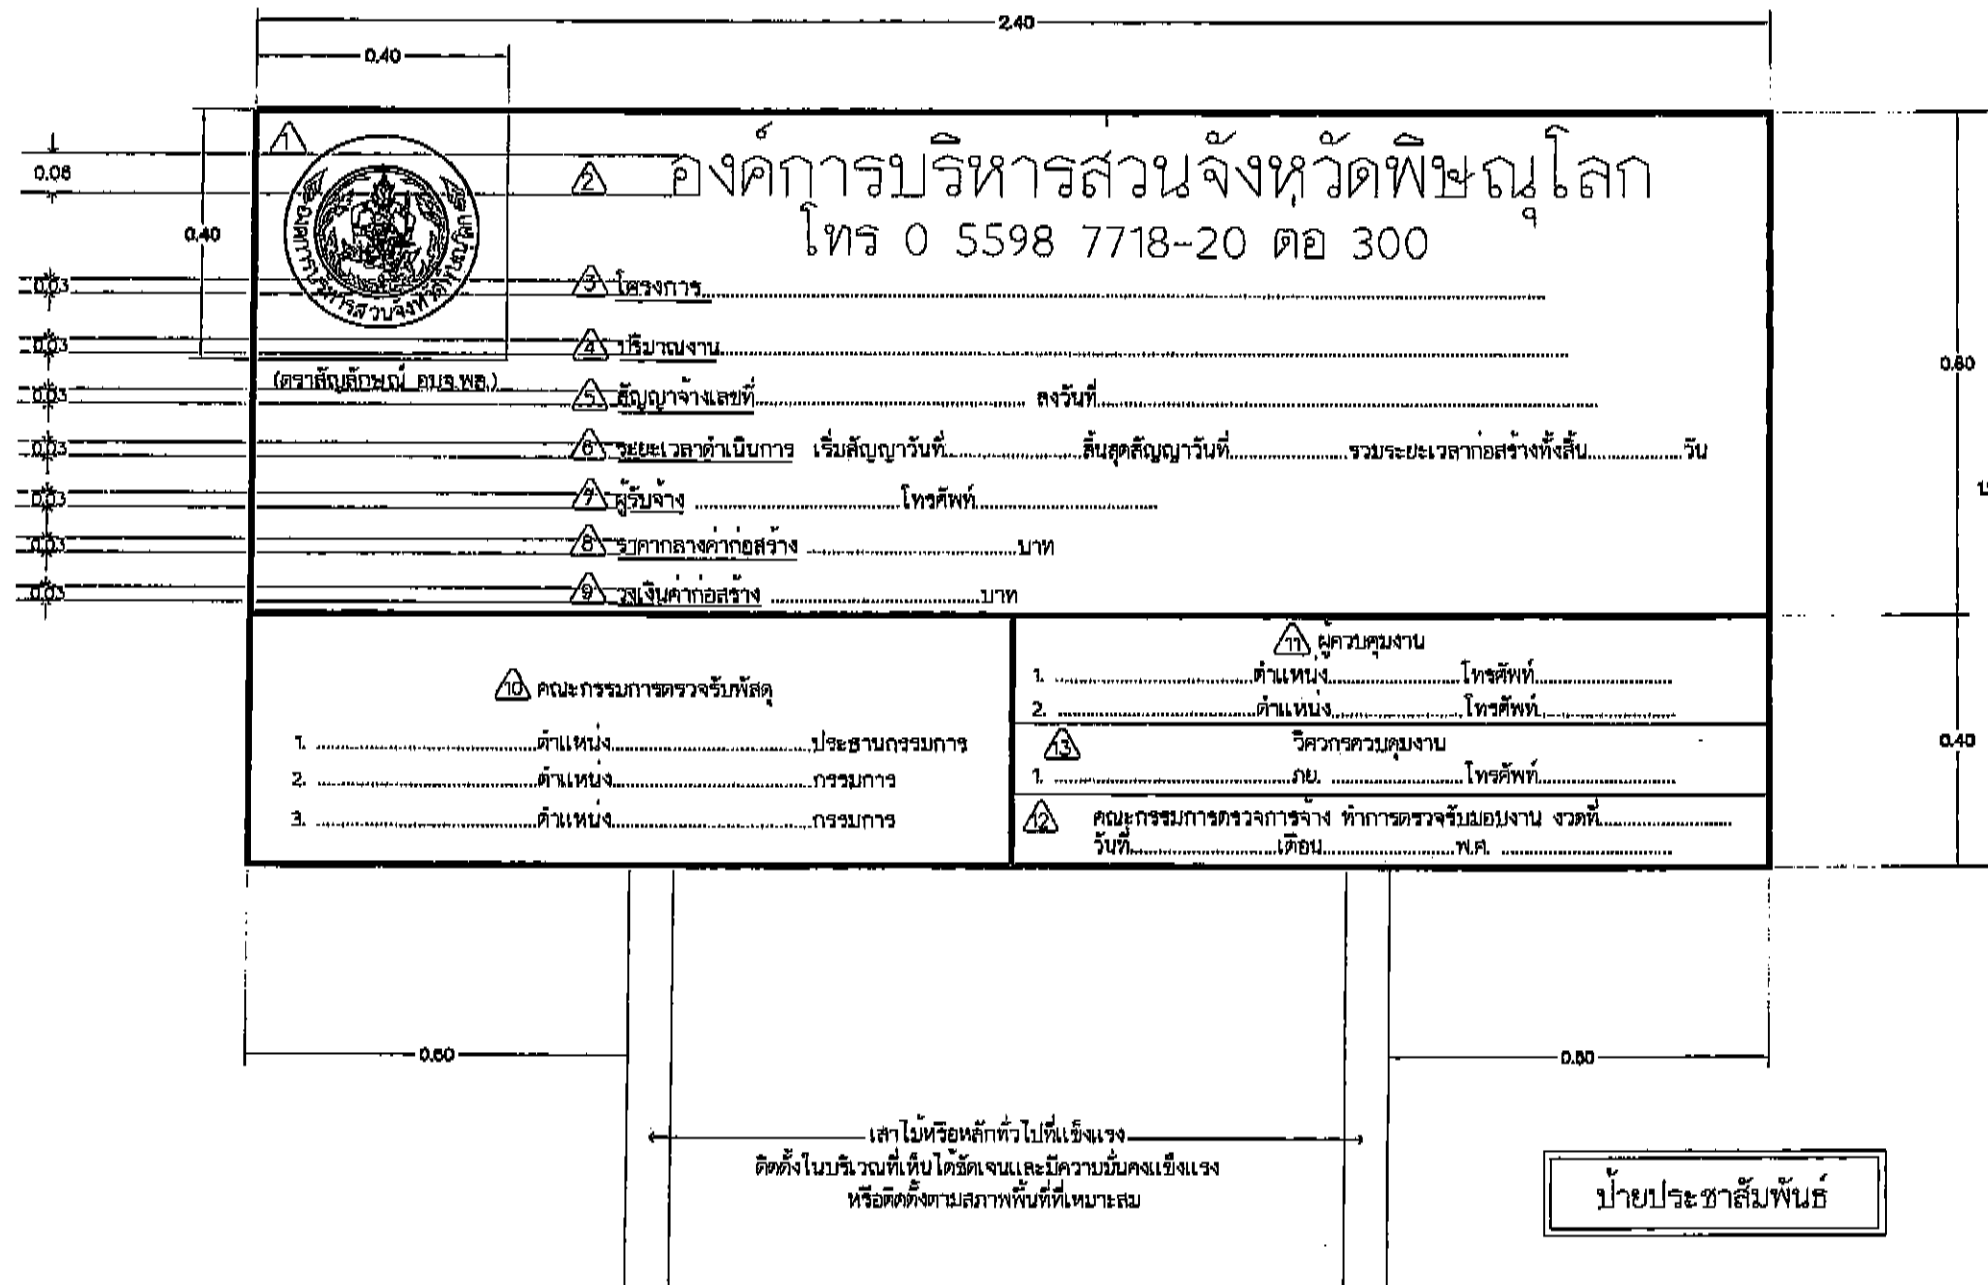 2.40
0.40
1
0.08
2 องค์การบริหารส่วนจังหวัดพิษณุโลก
0.40
องค์การบริหารส่วนจังหวัดพิษณุโลก
โทร 0 5598 7718-20 ตอ 300
0.03 3 โครงการ
0.03 4 ปริมาณงาน
0.80
(ตราสัญลักษณ์ อบจ.พล.)
0.03 5 สัญญาจ้างเลขที่ ลงวันที่
0.03 6 ระยะเวลาดำเนินการ เริ่มสัญญาวันที่ สิ้นสุดสัญญาวันที่ รวมระยะเวลาก่อสร้างทั้งสิ้น วัน
0.03 7 ผู้รับจ้าง โทรศัพท์
0.03 8 ราคากลางค่าก่อสร้าง บาท
0.03 9 วงเงินค่าก่อสร้าง บาท
10 คณะกรรมการตรวจรับพัสดุ
1. ตำแหน่ง ประธานกรรมการ
2. ตำแหน่ง กรรมการ
3. ตำแหน่ง กรรมการ
11 ผู้ควบคุมงาน
1. ตำแหน่ง โทรศัพท์
2. ตำแหน่ง โทรศัพท์
13 วิศวกรควบคุมงาน
0.40
1. ภย. โทรศัพท์
12 คณะกรรมการตรวจการจ้าง ทำการตรวจรับมอบงาน งวดที่
วันที่ เดือน พ.ศ.
0.60 0.60
เสาไม้หรือหลักทั่วไปที่แข็งแรง
ติดตั้งในบริเวณที่เห็นได้ชัดเจนและมีความมั่นคงแข็งแรง
หรือติดตั้งตามสภาพพื้นที่ที่เหมาะสม
ป้ายประชาสัมพันธ์